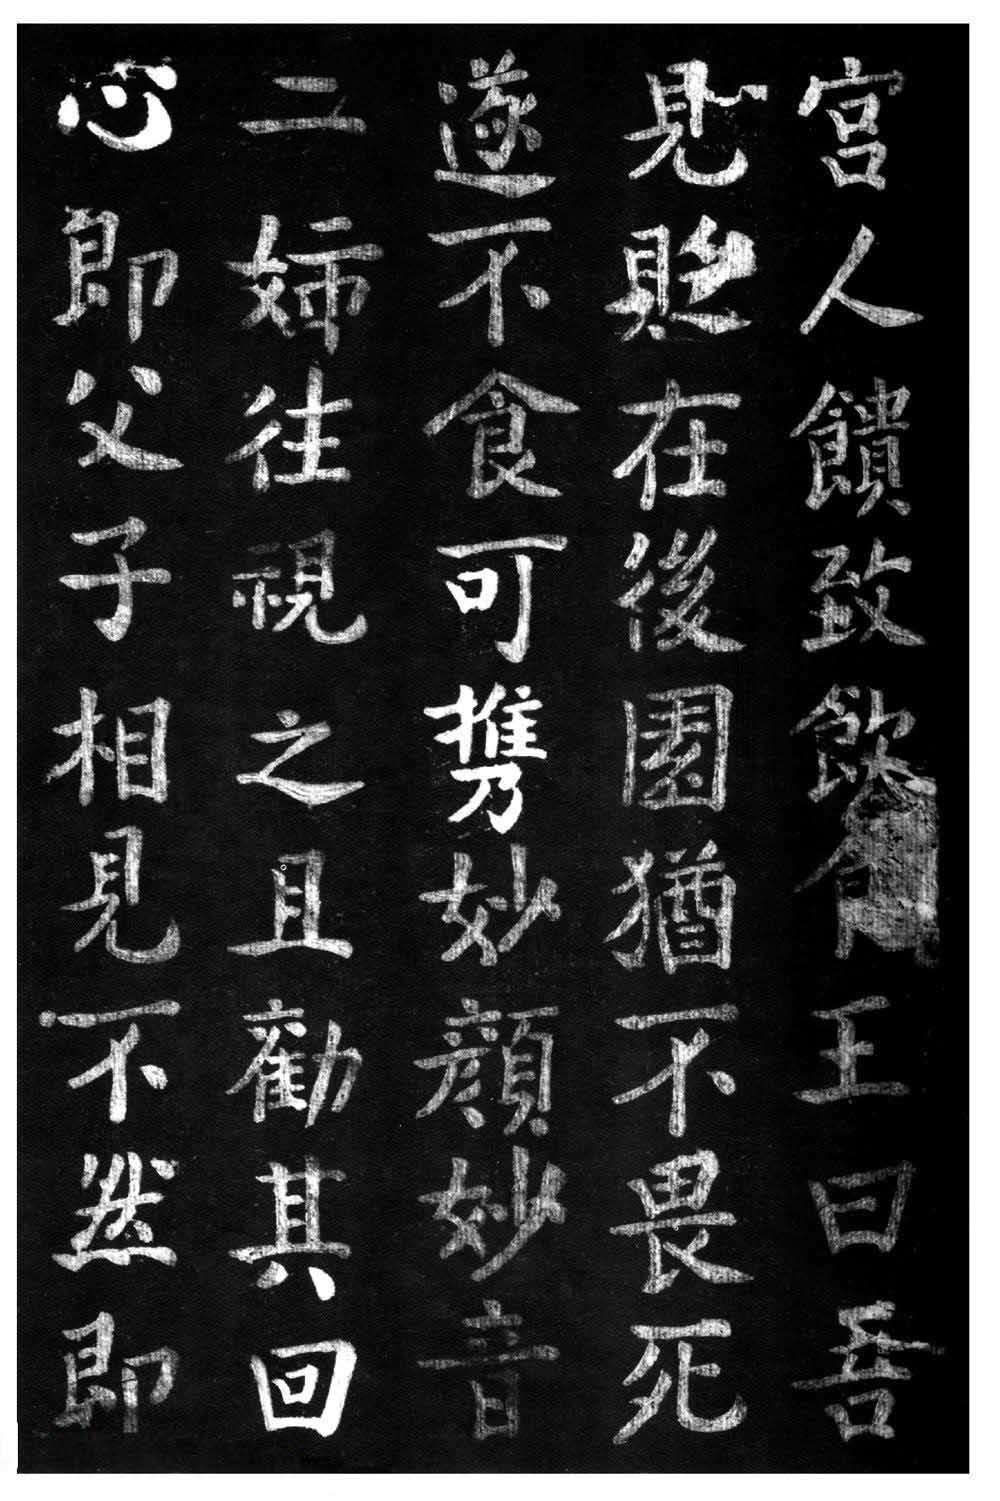 宮人饋致飲王曰吾
見貶在後園猶不畏死
遂不食可携妙顏妙音
二姊往視之且勸其回
心即父子相見不然即